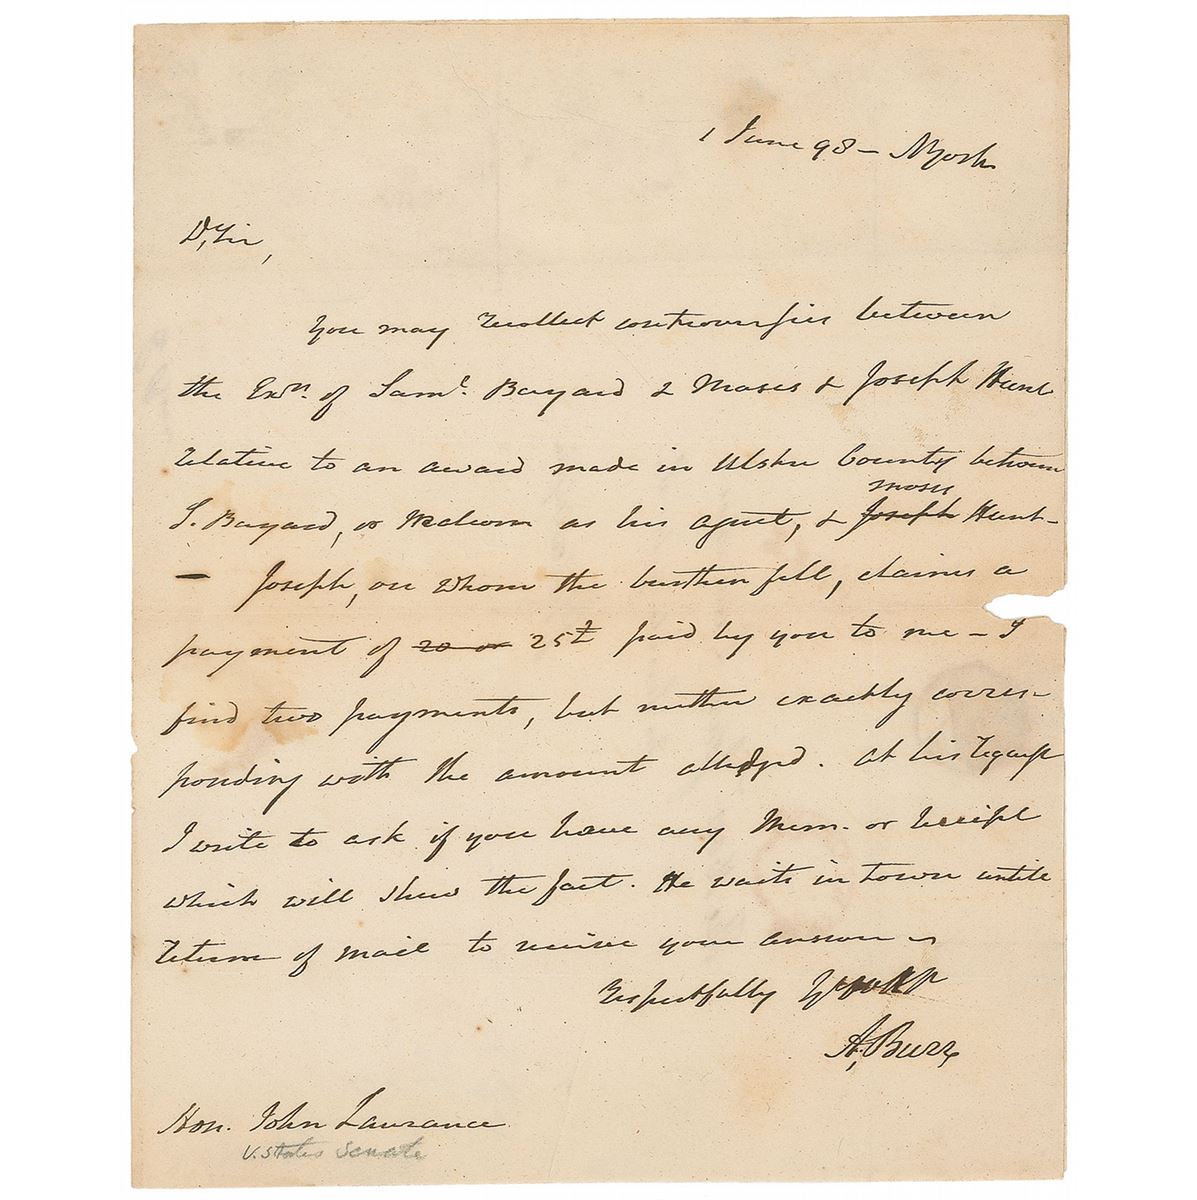 1 June 98 – NYork
Dr Sir,
You may recollect controversies between
the Exrs. of Saml. Bayard & Moses & Joseph Hunt
relative to an award made in Ulster County between
Moses
S. Bayard, or as his agent, & Joseph Hunt –
– Joseph, on whom the burthen fell, claims a
payment of 20 or 25£ paid by you to me – I
find two payments, but neither exactly corres-
ponding with the amount alledged. at his request
I write to ask if you have any Mem. or receipt
which will shew the fact. He waits in town until
return of mail to receive your answer –
Respectfully
A. Burr
Hon. John Laurance
U. States Senate